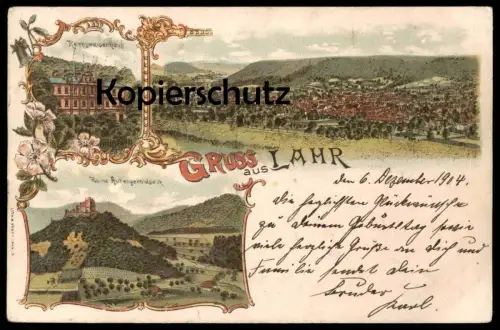 Reichswaisenhaus
Kopierschutz
GRUSS aus LAHR
Ruine Hohengeroldseck
den 6. Dezember 1904.
Die herzlichsten Glückwünsche
zu Deinem Geburtstag sowie
viele herzliche Grüße an dich und
Familie sendet dein
Bruder
Karl.